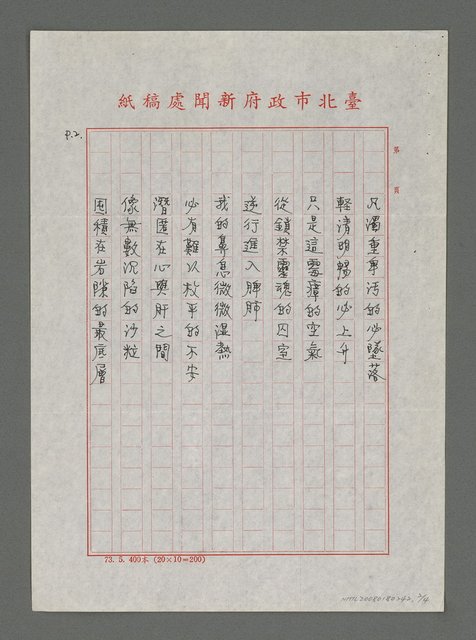 臺北市政府新聞處稿紙
P.2.
第 頁
凡濁重卑污的必墜落
輕清明暢的必上升
只是這霉瘴的空氣
從鎖禁靈魂的囚室
逆行進入脾肺
我的鼻息微微溼熱
必有難以枚平的不安
潛匿在心與肝之間
像無數沉陷的沙粒
囤積在岩隙的最底層
73. 5. 400本 (20×10=200)
NMTL20080180242, 2/4